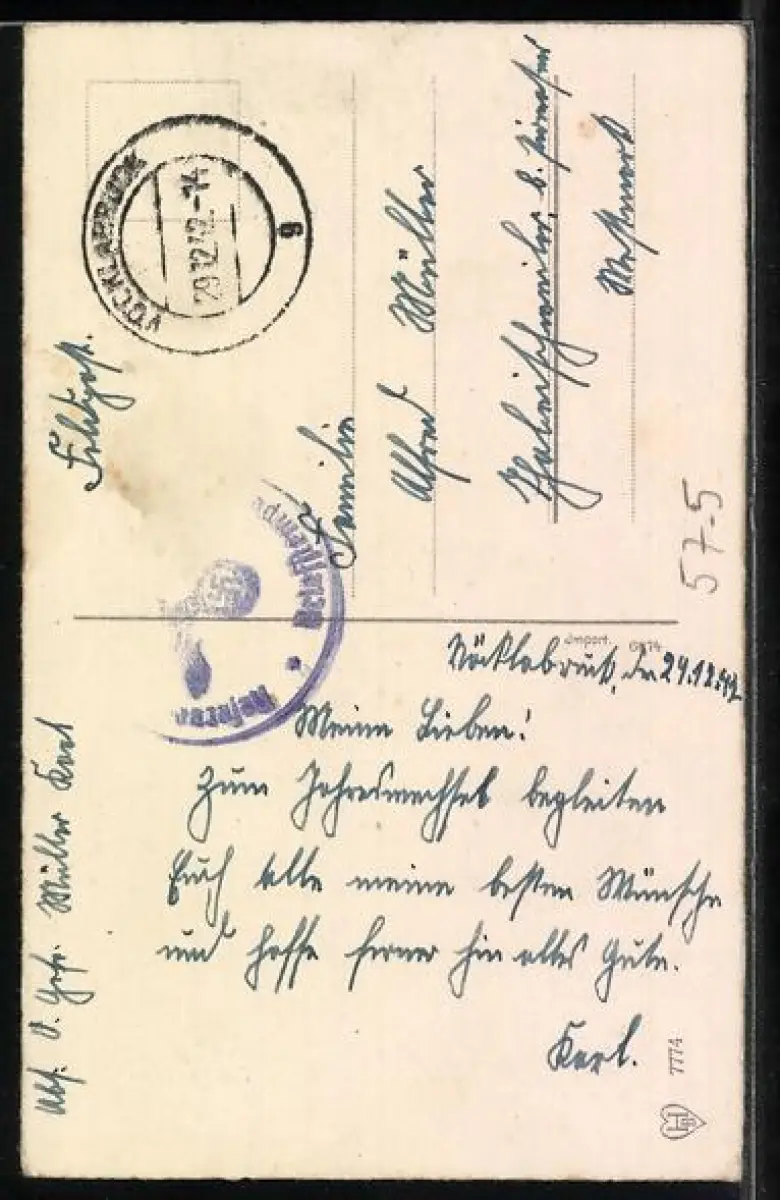 VÖCKLABRUCK
29.12.42.-14
g
Feldpost.
Familie
Alfred Müller
Thaleischweiler b. Pirmasens
Westmark
57-5
Briefstempel
Reserve
Import.
Vöcklabruck, den 29.12.42
Meine Lieben!
Zum Jahreswechsel begleiten
Euch alle meine besten Wünsche
und hoffe ferner hin alles Gute.
Karl.
Abs. O. Gefr. Müller Karl
7774